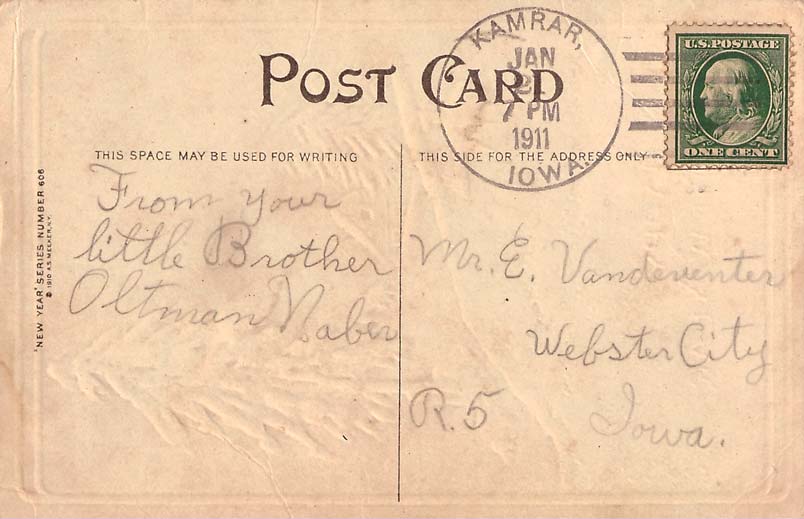 POST CARD
KAMRAR,
JAN
2
7 PM
1911
IOWA.
U.S.POSTAGE
ONE CENT
THIS SPACE MAY BE USED FOR WRITING
THIS SIDE FOR THE ADDRESS ONLY
From your
little Brother
Oltman Naber
Mr. E. Vandeventer
Webster City
R.5 Iowa.
"NEW YEAR" SERIES NUMBER 606
© 1910 A.S. MEEKER, N.Y.